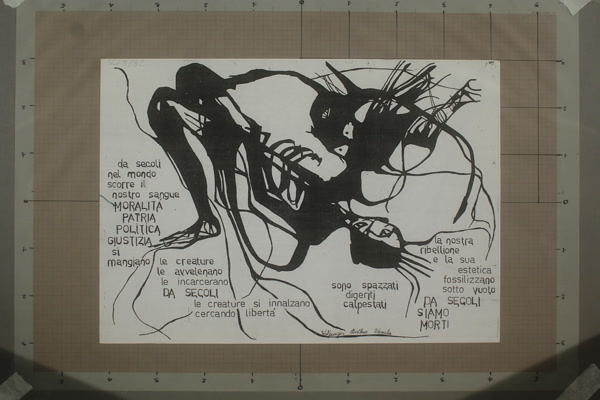 da secoli
nel mondo
scorre il
nostro sangue
MORALITA
PATRIA
POLITICA
GIUSTIZIA
si
mangiano
le creature
le avvelenano
le incarcerano
DA SECOLI
le creature si innalzano
cercando liberta'
sono spazzati
digeriti
calpestati
la nostra
ribellione
e la sua
estetica
fossilizzano
sotto vuoto
DA SECOLI
SIAMO
MORTI